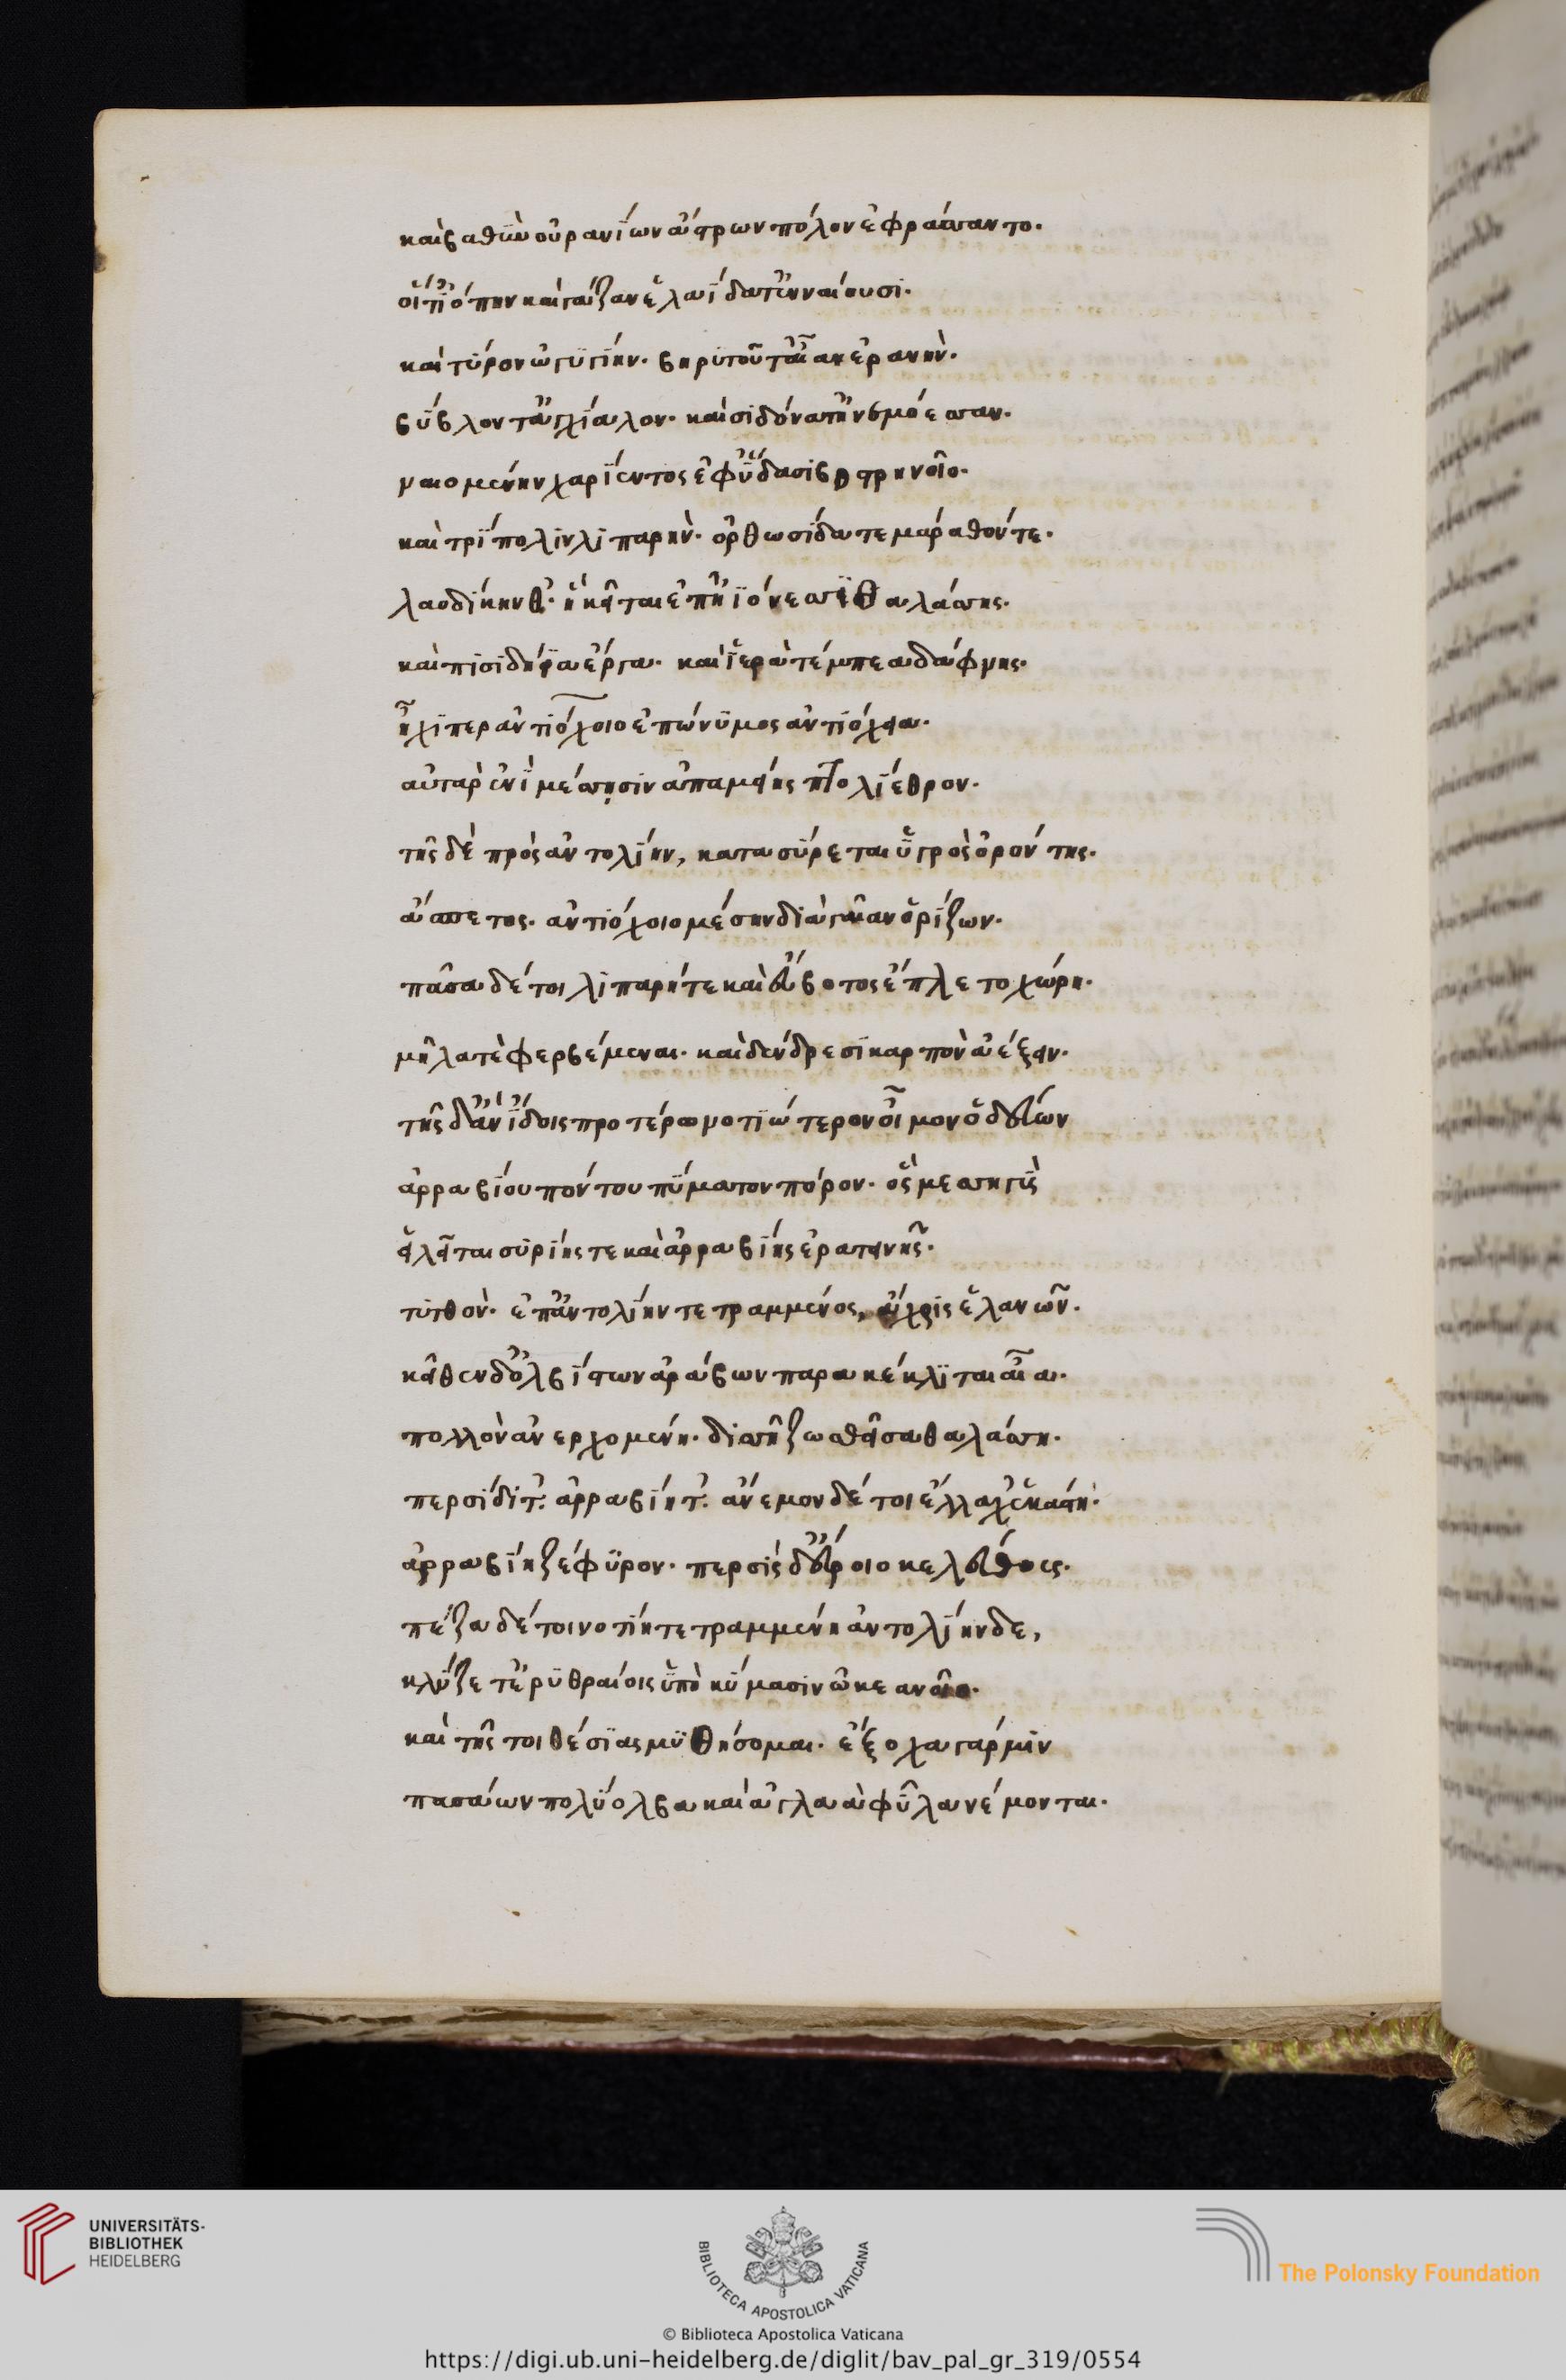 καὶ βαθὺν οὐρανίων ἄστρων πόλον ἐφράσσαντο.
οἵ τ' Ἰόπην καὶ γάζαν ἐλαΐδα τ' ἐνναίουσι.
καὶ τύρον ὠγυγίην. βηρυτοῦ τ' αἶαν ἐρανήν.
βύβλον τ' ἀγχίαλον. καὶ σιδόν' ἀνθεμόεσσαν.
ναιομένην χαρίεντος ἐφ' ὕδασι βοστρηνοῖο.
καὶ τρίπολιν λιπαρήν. ὀρθωσίδα τε μάραθόν τε.
λαοδίκην θ'. ἣ κεῖται ἐπ' ἠϊόνεσσι θαλάσσης.
καὶ πισιδήϊα ἔργα. καὶ ἱερὰ τέμπεα δάφνης.
ἧχί περ ἀντιόχοιο ἐπώνυμος ἀντιόχεια.
αὐτὰρ ἐνὶ μέσσησιν ἀπαμείης πτολίεθρον.
τῆς δὲ πρὸς ἀντολίην, κατασύρεται ὑγρὸς ὀρόντης.
ἄσπετος. ἀντιόχοιο μέσην διὰ γαῖαν ὁρίζων.
πᾶσα δέ τοι λιπαρή τε καὶ εὔβοτος ἔπλετο χώρη.
μῆλά τε φερβέμεναι. καὶ δένδρεσι καρπὸν ἀέξειν.
τῆς δ' ἂν ἴδοις προτέρω νοτιώτερον οἶμον ὁδεύων
ἀρραβίου πόντου πύματον πόρον. ὅς με σσηγὺς
εἱλεῖται συρίης τε καὶ ἀρραβίης ἐρατεινῆς.
τυτθὸν. ἐπ' ἀντολίην τετραμμένος, ἄχρις ἐλανῶν.
κεῖθεν δ' ὀλβίστων ἀράβων παρακέκλιται αἶα.
πολλὸν ἀνερχομένη. δισσῇ ζωσθεῖσα θαλάσσῃ.
περσίδι τ'. ἀρραβίη τ'. ἄνεμον δέ τοι ἔλλαχ' ἑκάστη.
ἀρραβίη ζέφυρον. περσὶς δ' εὔροιο κελεύθους.
πέζα δέ τοι νοτίη τετραμμένη ἀντολίηνδε,
κλύζετ' ἐρυθραίοις ὑπὸ κύμασιν ὠκεανοῖο.
καὶ τῆς τοι θέσιας μυθήσομαι. ἔξοχα γάρ μιν
πασάων πολύολβα καὶ ἀγλαὰ φῦλα νέμονται.
UNIVERSITÄTS-
BIBLIOTHEK
HEIDELBERG
BIBLIOTECA APOSTOLICA VATICANA
The Polonsky Foundation
© Biblioteca Apostolica Vaticana
https://digi.ub.uni-heidelberg.de/diglit/bav_pal_gr_319/0554